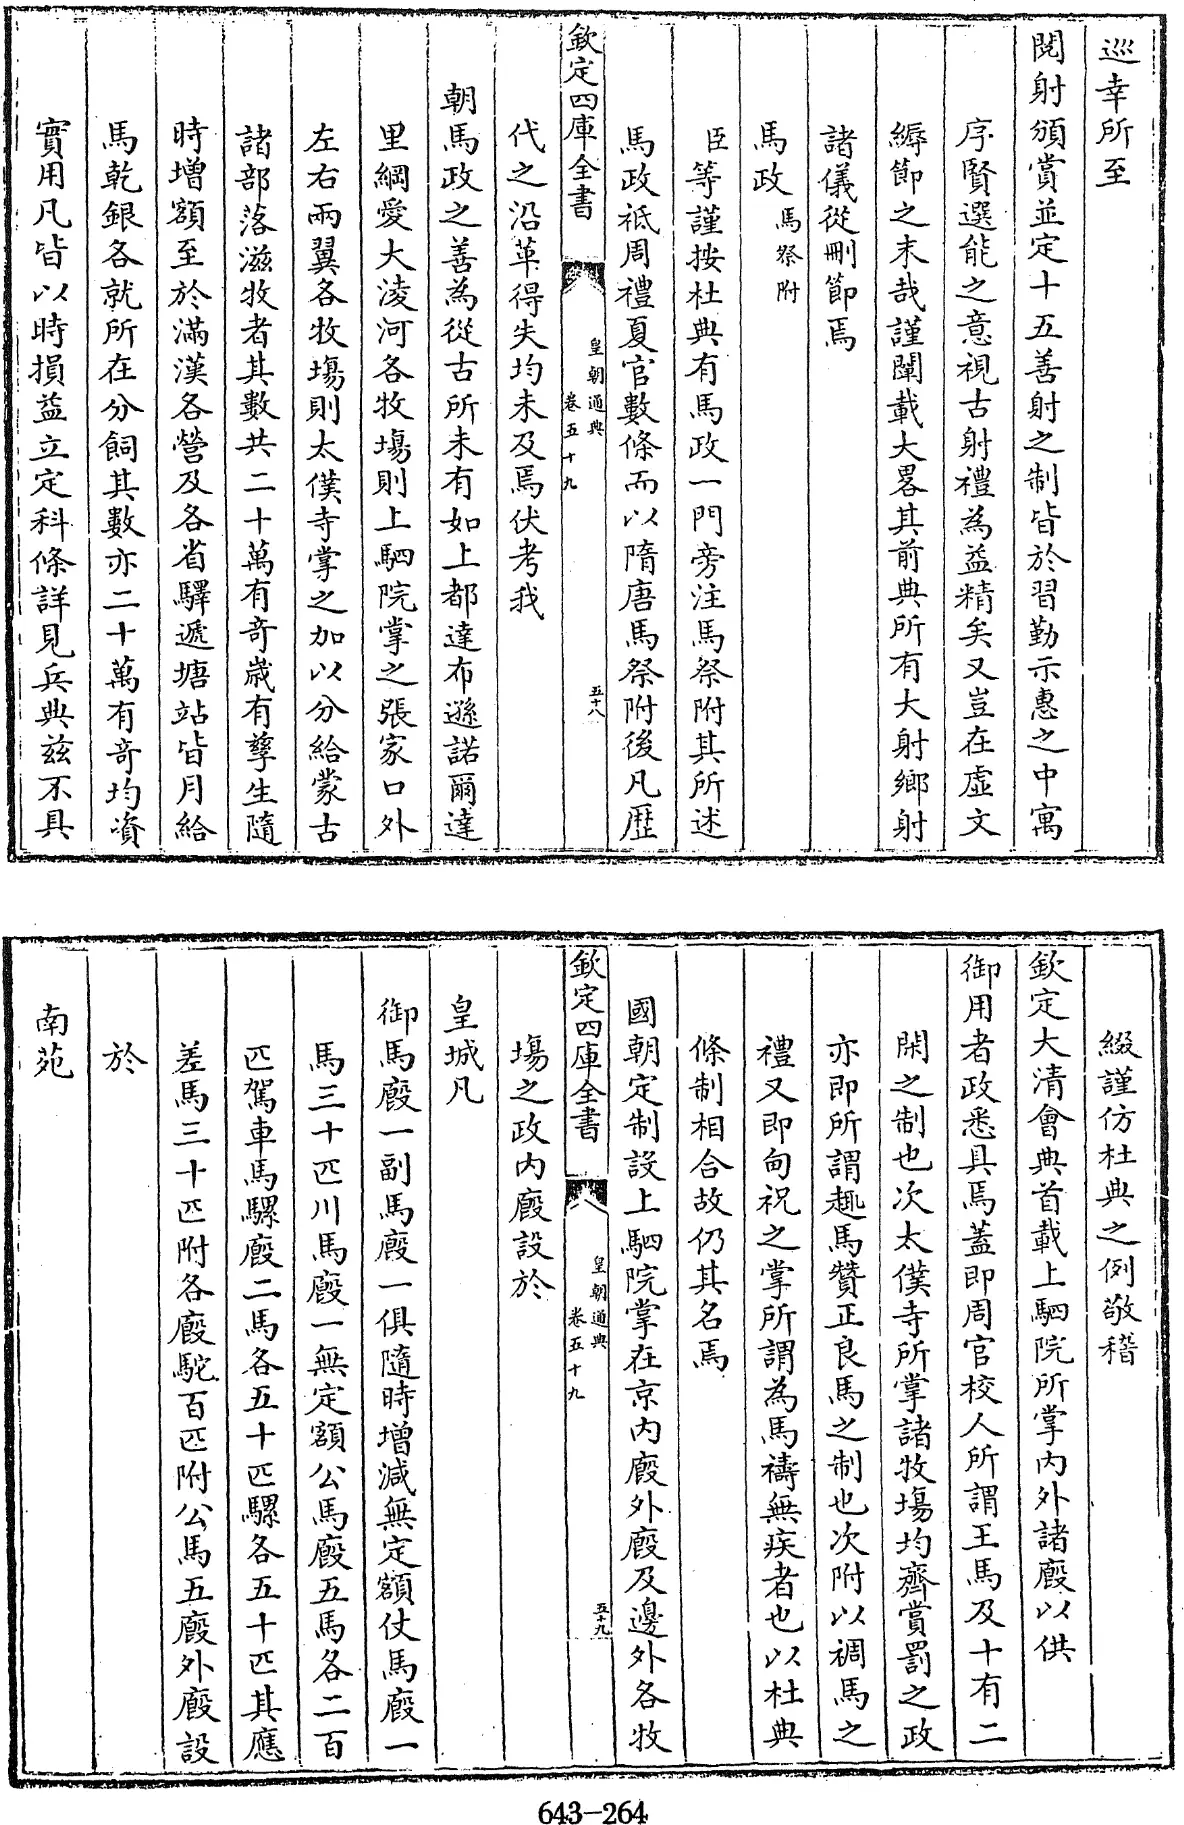 巡幸所至
閱射頒賞並定十五善射之制皆於習勤示惠之中寓
序賢選能之意視古射禮為益精矣又豈在虛文
縟節之末哉謹闡載大畧其前典所有大射鄉射
諸儀從刪節焉
馬政馬祭附
臣等謹按杜典有馬政一門旁注馬祭附其所述
馬政祗周禮夏官數條而以隋唐馬祭附後凡歷
欽定四庫全書 皇朝通典 卷五十九 五十八
代之沿革得失均未及焉伏考我
朝馬政之善為從古所未有如上都達布遜諾爾達
里綱愛大淩河各牧場則上駟院掌之張家口外
左右兩翼各牧場則太僕寺掌之加以分給蒙古
諸部落滋牧者其數共二十萬有奇歲有孳生隨
時增額至於滿漢各營及各省驛遞塘站皆月給
馬乾銀各就所在分飼其數亦二十萬有奇均資
實用凡皆以時損益立定科條詳見兵典茲不具
綴謹仿杜典之例敬稽
欽定大清會典首載上駟院所掌內外諸廄以供
御用者政悉具焉蓋即周官校人所謂王馬及十有二
閑之制也次太僕寺所掌諸牧場均齊賞罰之政
亦即所謂趣馬贊正良馬之制也次附以禂馬之
禮又即甸祝之掌所謂為馬禱無疾者也以杜典
條制相合故仍其名焉
國朝定制設上駟院掌在京內廄外廄及邊外各牧
欽定四庫全書 皇朝通典 卷五十九 五十九
場之政內廄設於
皇城凡
御馬廄一副馬廄一俱隨時增減無定額仗馬廄一
馬三十匹川馬廄一無定額公馬廄五馬各二百
匹駕車馬騾廄二馬各五十匹騾各五十匹其應
差馬三十匹附各廄駝百匹附公馬五廄外廄設
於
南苑
643-264